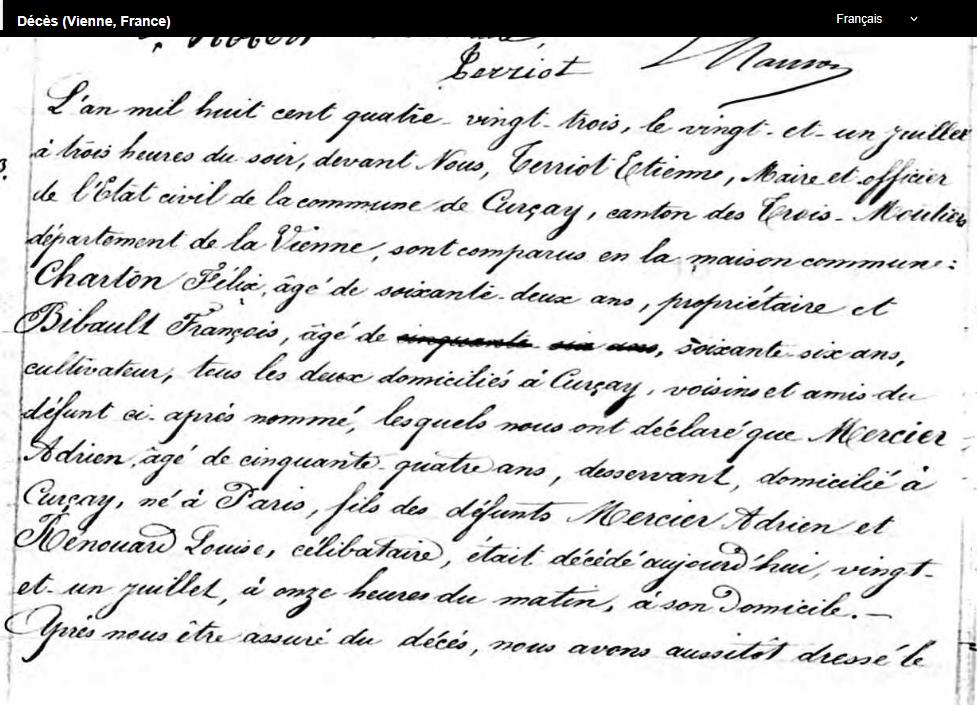 Décès (Vienne, France)
Français
Terriot
L'an mil huit cent quatre-vingt-trois, le vingt-et-un juillet
à trois heures du soir, devant Nous, Terriot Etienne, Maire et officier
de l'Etat civil de la commune de Curçay, canton des Trois-Moutiers
département de la Vienne, sont comparus en la maison commune:
Charton Félix, âgé de soixante-deux ans, propriétaire et
Bibault François, âgé de cinquante six ans, soixante-six ans,
cultivateur, tous les deux domiciliés à Curçay, voisins et amis du
défunt ci-après nommé, lesquels nous ont déclaré que Mercier
Adrien, âgé de cinquante-quatre ans, desservant, domicilié à
Curçay, né à Paris, fils des défunts Mercier Adrien et
Rénouard Louise, célibataire, était décédé aujourd'hui, vingt-
et-un juillet, à onze heures du matin, à son domicile.—
Après nous être assuré du décés, nous avons aussitôt dressé le